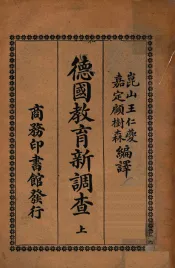 崑山王仁夔
嘉定顧樹森
編譯
德國教育新調查 上
商務印書館發行